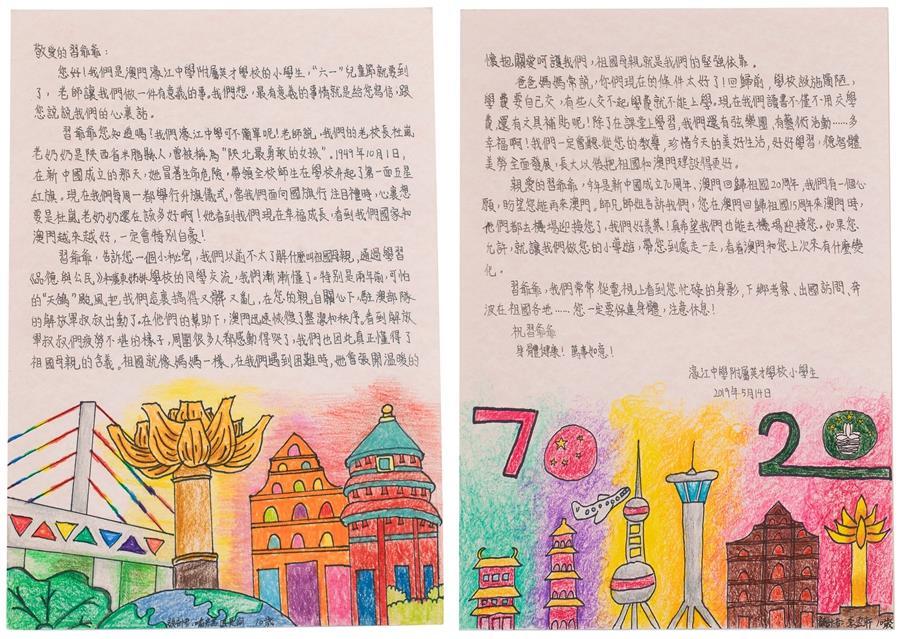 敬愛的習爺爺：
您好！我們是澳門濠江中學附屬英才學校的小學生，“六一”兒童節就要到
了，老師讓我們做一件有意義的事。我們想，最有意義的事情就是給您寫信，跟
您說說我們的心裏話。
習爺爺您知道嗎！我們濠江中學可不簡單呢！老師說，我們的老校長杜嵐
老奶奶是陝西省米脂縣人，曾被稱為“陝北最勇敢的女孩”。1949年10月1日，
在新中國成立的那天，她冒著生命危險，帶領全校師生在學校升起了第一面五星
紅旗。現在我們每周一都舉行升旗儀式，當我們面向國旗行注目禮時，心裏想
要是杜嵐老奶奶還在該多好啊！她看到我們現在幸福成長，看到我們國家和
澳門越來越好，一定會特別自豪！
習爺爺，告訴您一個小秘密，我們以前不太了解什麼叫祖國母親，通過學習
《品德與公民》和學校的同學交流，我們漸漸懂了。特別是兩年前，可怕
的“天鴿”颱風把我們這裏搞得又髒又亂，在您的親自關心下，駐澳部隊
的解放軍叔叔出動了。在他們的幫助下，澳門迅速恢復了整潔和秩序。看到解放
軍叔叔們疲勞不堪的樣子，周圍很多人都感動得哭了，我們也因此真正懂得了
祖國母親的含義。祖國就像媽媽一樣，在我們遇到困難時，她會張開溫暖的
懷抱關愛呵護我們，祖國母親就是我們的堅強依靠。
爸爸媽媽常說，你們現在的條件太好了！回歸前，學校設施簡陋，
學費要自己交，有些人交不起學費就不能上學。現在我們讀書不僅不用交學
費，還有文具補貼呢！除了在課堂上學習，我們還有弦樂團，有藝術活動……多
幸福啊！我們一定會聽從您的教導，珍惜今天的美好生活，好好學習，德智體
美勞全面發展，長大以後把祖國和澳門建設得更好。
親愛的習爺爺，今年是新中國成立70周年、澳門回歸祖國20周年，我們有一個心
願，盼望您能再來澳門。師兄師姐告訴我們，您在澳門回歸祖國15周年來澳門時，
他們都去機場迎接您了，我們好羨慕！真希望我們也能去機場迎接您。如果您
允許，就讓我們做您的小導遊，帶您到處走一走，看看澳門和您上次來有什麼變
化。
習爺爺，我們常常從電視上看到您忙碌的身影，下鄉考察、出國訪問、奔
波在祖國各地……您一定要保重身體，注意休息！
祝習爺爺
身體健康！萬事如意！
濠江中學附屬英才學校小學生
2019年5月14日
70
20
10歲
10歲